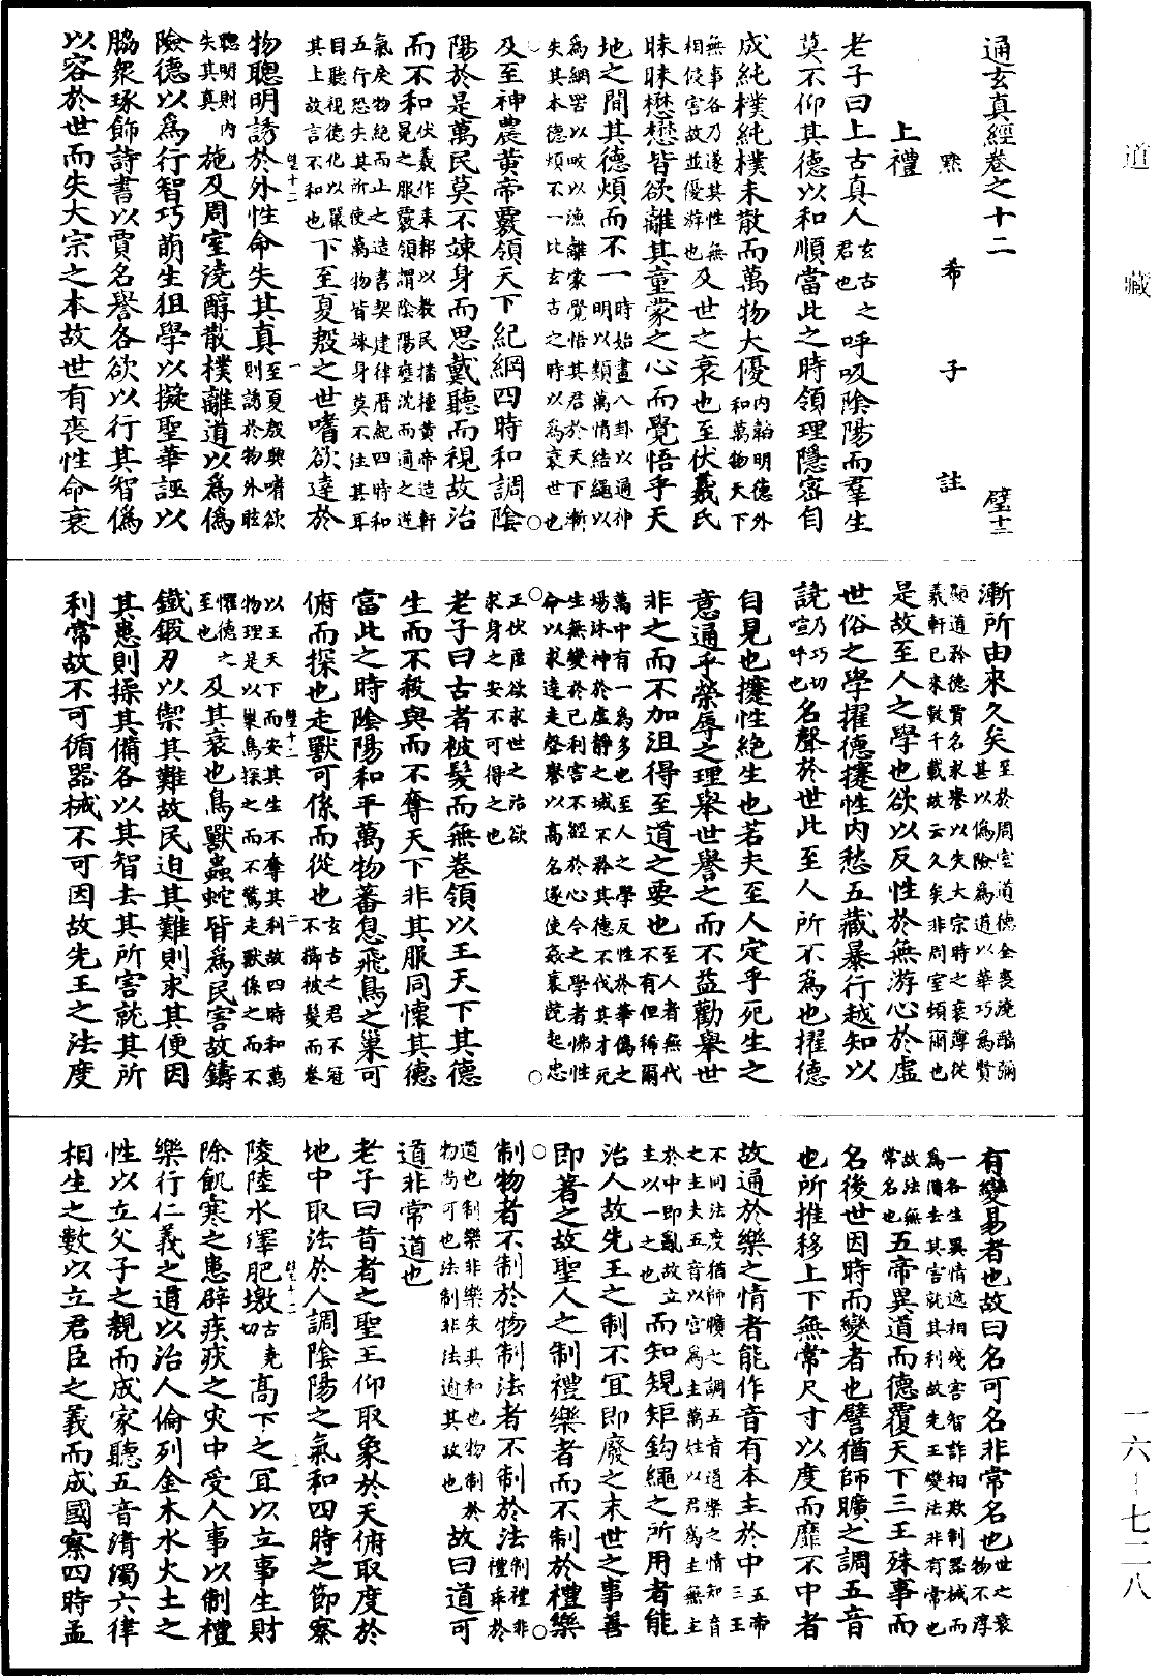 道藏
通玄真經卷之十二 璧十二
默希子註
上禮
老子曰上古真人玄古之君也呼吸陰陽而羣生
莫不仰其德以和順當此之時領理隱密自
成純樸純樸未散而萬物大優內韜明德外和萬物天下
無事各乃遂其性無相侵害故並優游也及世之衰也至伏羲氏
昧昧懋懋皆欲離其童蒙之心而覺悟乎天
地之間其德煩而不一時始畫八卦以通神明以類萬情結繩以
為網罟以畋以漁離蒙覺悟其君於天下漸失其本德煩不一比玄古之時以為衰世也
及至神農黃帝覈領天下紀綱四時和調陰
陽於是萬民莫不竦身而思戴聽而視故治
而不和伏羲作耒耜以教民播種黃帝造軒冕之服覈領謂陰陽壅沈而通之逆
氣戾物絕而止之造書契建律曆紀四時和五行恐失其所使萬物皆竦身莫不注其耳
目聽視德化以嚴其上故言不和也下至夏殷之世嗜欲達於
物聰明誘於外性命失其真至夏殷興嗜欲則誘於物外眩
聰明則內失其真施及周室澆醇散樸離道以為偽
險德以為行智巧萌生狙學以擬聖華誣以
脇衆琢飾詩書以賈名譽各欲以行其智偽
以容於世而失大宗之本故世有喪性命衰
漸所由來久矣至於周室道德全喪澆醨彌甚以偽險為道以華巧為賢
顯道矜德賢名求譽以失大宗時之衰薄從羲軒已來數千載故云久矣非周室頓爾也
是故至人之學也欲以反性於無游心於虛
世俗之學擢德攓性內愁五藏暴行越知以
譊乃巧切喧呼也名聲於世此至人所不為也擢德
自見也攓性絕生也若夫至人定乎死生之
意通乎榮辱之理舉世譽之而不益勸舉世
非之而不加沮得至道之要也至人者無代不有但稀爾
萬中有一為多也至人之學反性於華偽之場沐神於虛靜之域不矜其德不伐其才死
生無變於己利害不經於心今之學者悕性命以求達走聲譽以高名遂使姦衰競起忠
正伏匿欲求世之治欲求身之安不可得之也
老子曰古者被髮而無卷領以王天下其德
生而不殺與而不奪天下非其服同懷其德
當此之時陰陽和平萬物蕃息飛鳥之巢可
俯而探也走獸可係而從也玄古之君不冠不擳被髮而卷
以王天下而安其生不奪其利故四時和萬物理是以巢鳥探之而不驚走獸係之而不
懼德之至也及其衰也鳥獸蟲蛇皆為民害故鑄
鐵鍛刃以禦其難故民迫其難則求其便因
其患則操其備各以其智去其所害就其所
利常故不可循器械不可因故先王之法度
有變易者也故曰名可名非常名也世之衰物不淳
一各生異情遞相殘害智詐相欺制器械而為備去其害就其利故先王變法非有常也
故法無常名也五帝異道而德覆天下三王殊事而
名後世因時而變者也譬猶師曠之調五音
也所推移上下無常尺寸以度而靡不中者
故通於樂之情者能作音有本主於中五帝三王
不同法度猶師曠之調五音道樂之情知音之主夫五音以宮為主萬姓以君為主無主
於中即亂故立主以一之也而知規矩鈎繩之所用者能
治人故先王之制不宜即廢之末世之事善
即著之故聖人之制禮樂者而不制於禮樂
制物者不制於物制法者不制於法制禮非禮乖於
道也制樂非樂失其和也物制於物尚可也法制非法遊其政也故曰道可
道非常道也
老子曰昔者之聖王仰取象於天俯取度於
地中取法於人調陰陽之氣和四時之節察
陵陸水澤肥墩古堯切高下之宜以立事生財
除飢寒之患辟疾疢之灾中受人事以制禮
樂行仁義之道以治人倫列金木水火土之
性以立父子之親而成家聽五音清濁六律
相生之數以立君臣之義而成國察四時孟
一六—七二八